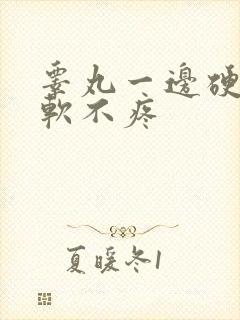 睾丸一邊硬
軟不疼
夏暖冬1